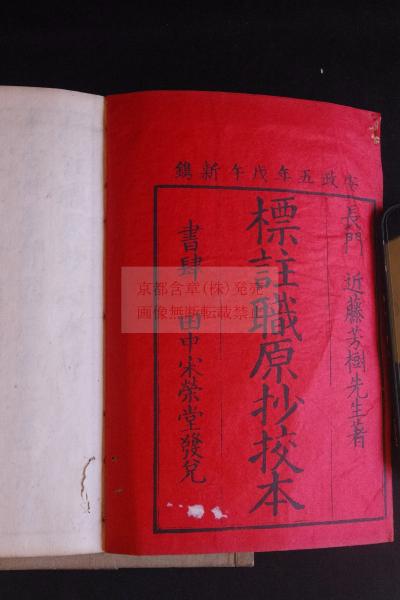 安政五年戊午新鐫
長門 近藤芳樹先生著
標註職原抄挍本
書肆 田中宋榮堂發兌
京都含章(株)発売
画像無断転載禁止